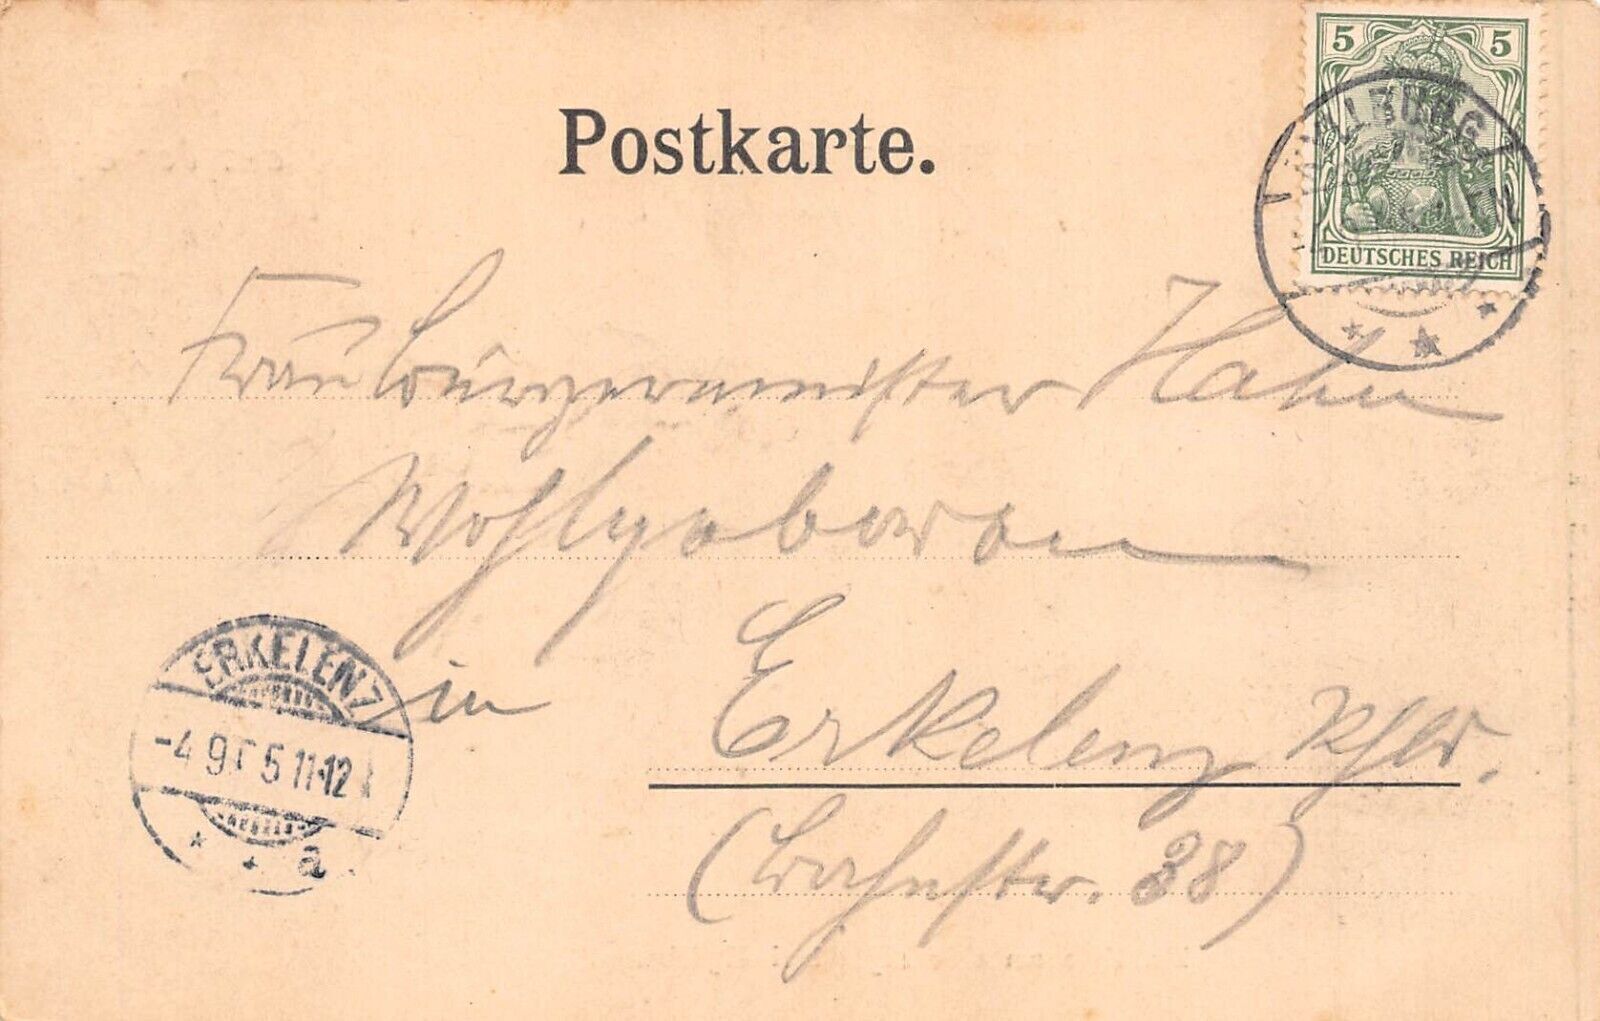 Postkarte.
5 5
DEUTSCHES REICH
Frau Bürgermeister Hahn
Wohlgeboren
in Erkelenz Rhld.
(Bahnstr. 38)
ERKELENZ
-4 9 5 11-12
* * a